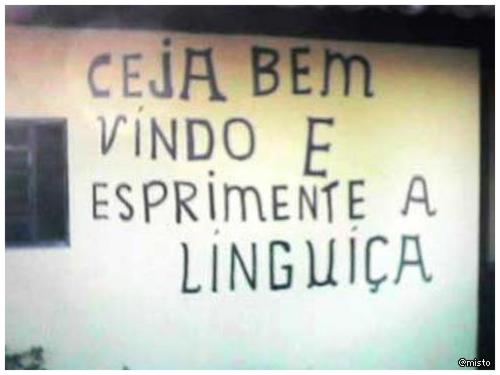 CEJA BEM
VINDO E
ESPRIMENTE A
LINGUIÇA
@misto